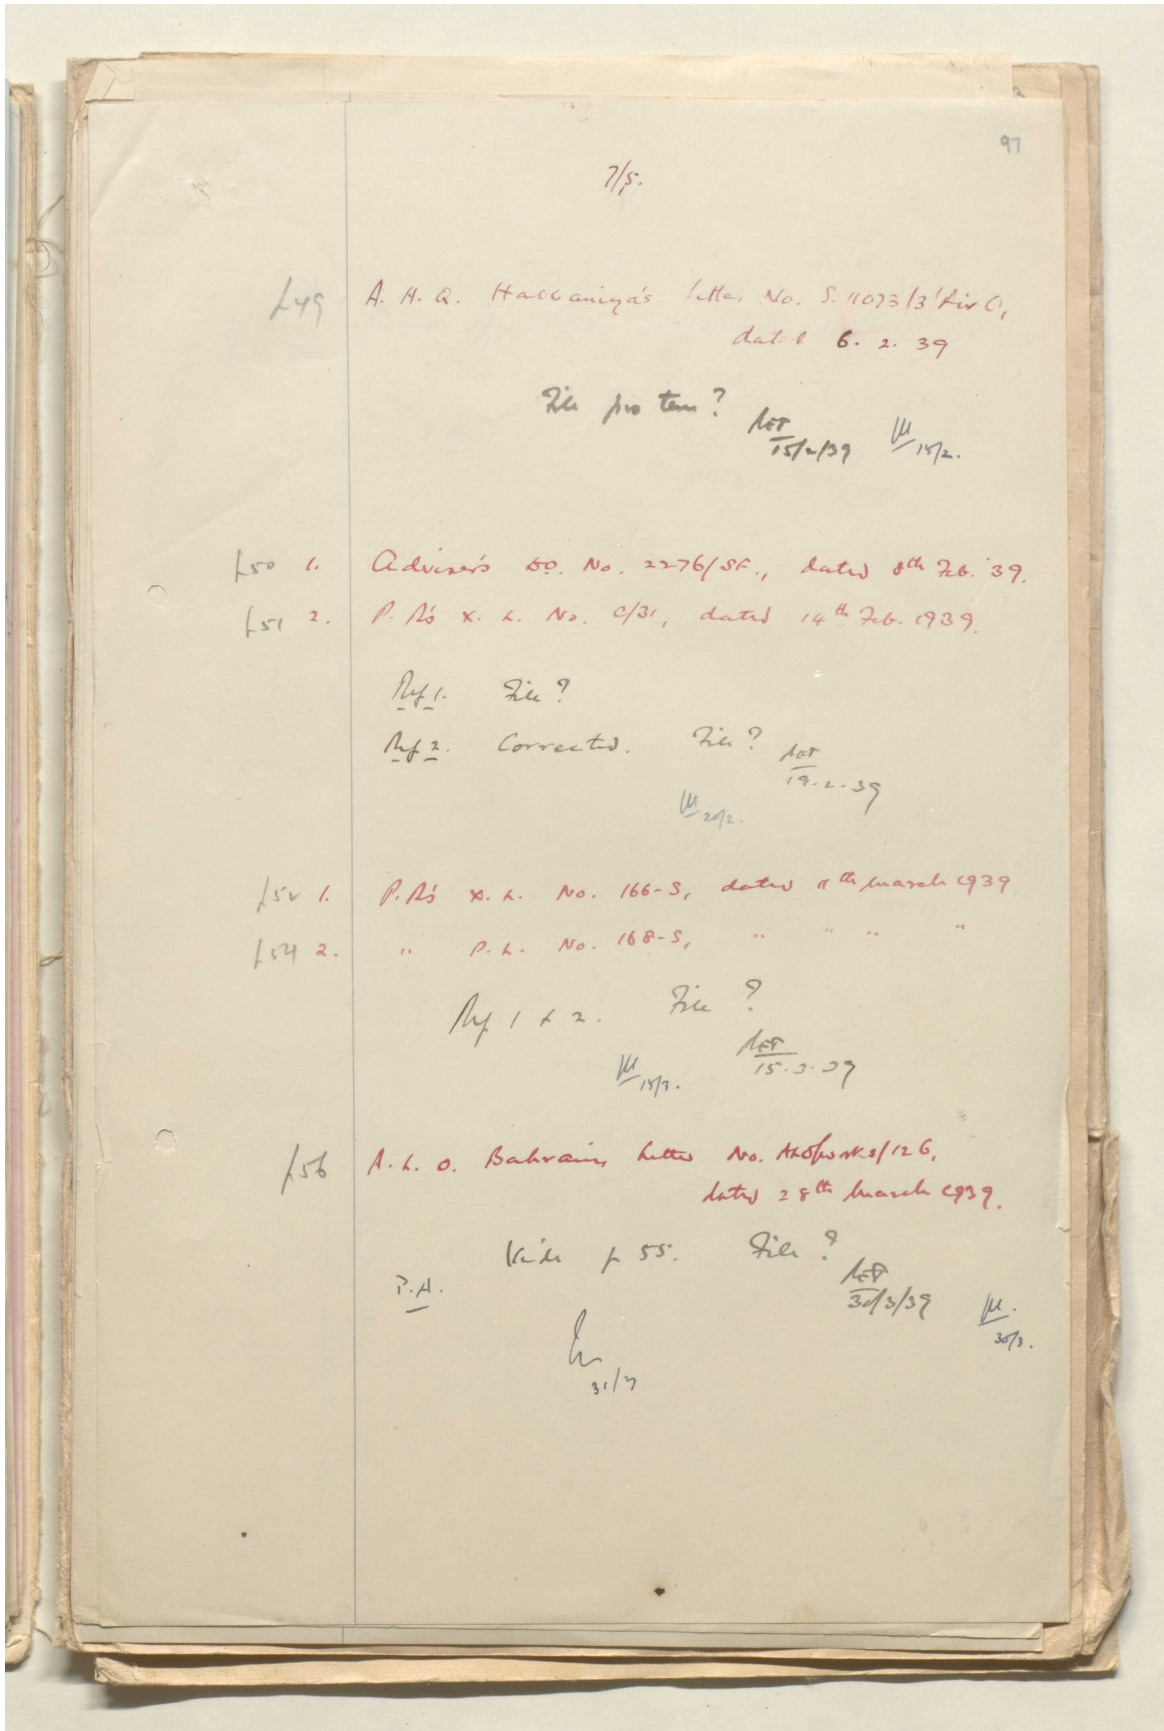 97
7/5.
f49 A. H. Q. Habbaniya's letter No. S. 11073/3/Air O,
dated 6. 2. 39
File pro tem?
15/2/39 15/2.
f50 1. Adviser's D.O. No. 2276/SF., dated 8th Feb. '39.
f51 2. P. R's X. L. No. C/31, dated 14th Feb. 1939.
Ref 1. File?
Ref 2. Corrected. File?
19. 2. 39
20/2.
f52 1. P. R's X. L. No. 166-S, dated 11th March 1939
f54 2. " P. L. No. 168-S, " " " "
Ref 1 & 2. File ?
15. 3. 39
15/3.
f56 A. L. O. Bahrain's letter No. /126,
dated 28th March 1939.
Vide f 55. File ?
30/3/39
P.A.
30/3.
31/3